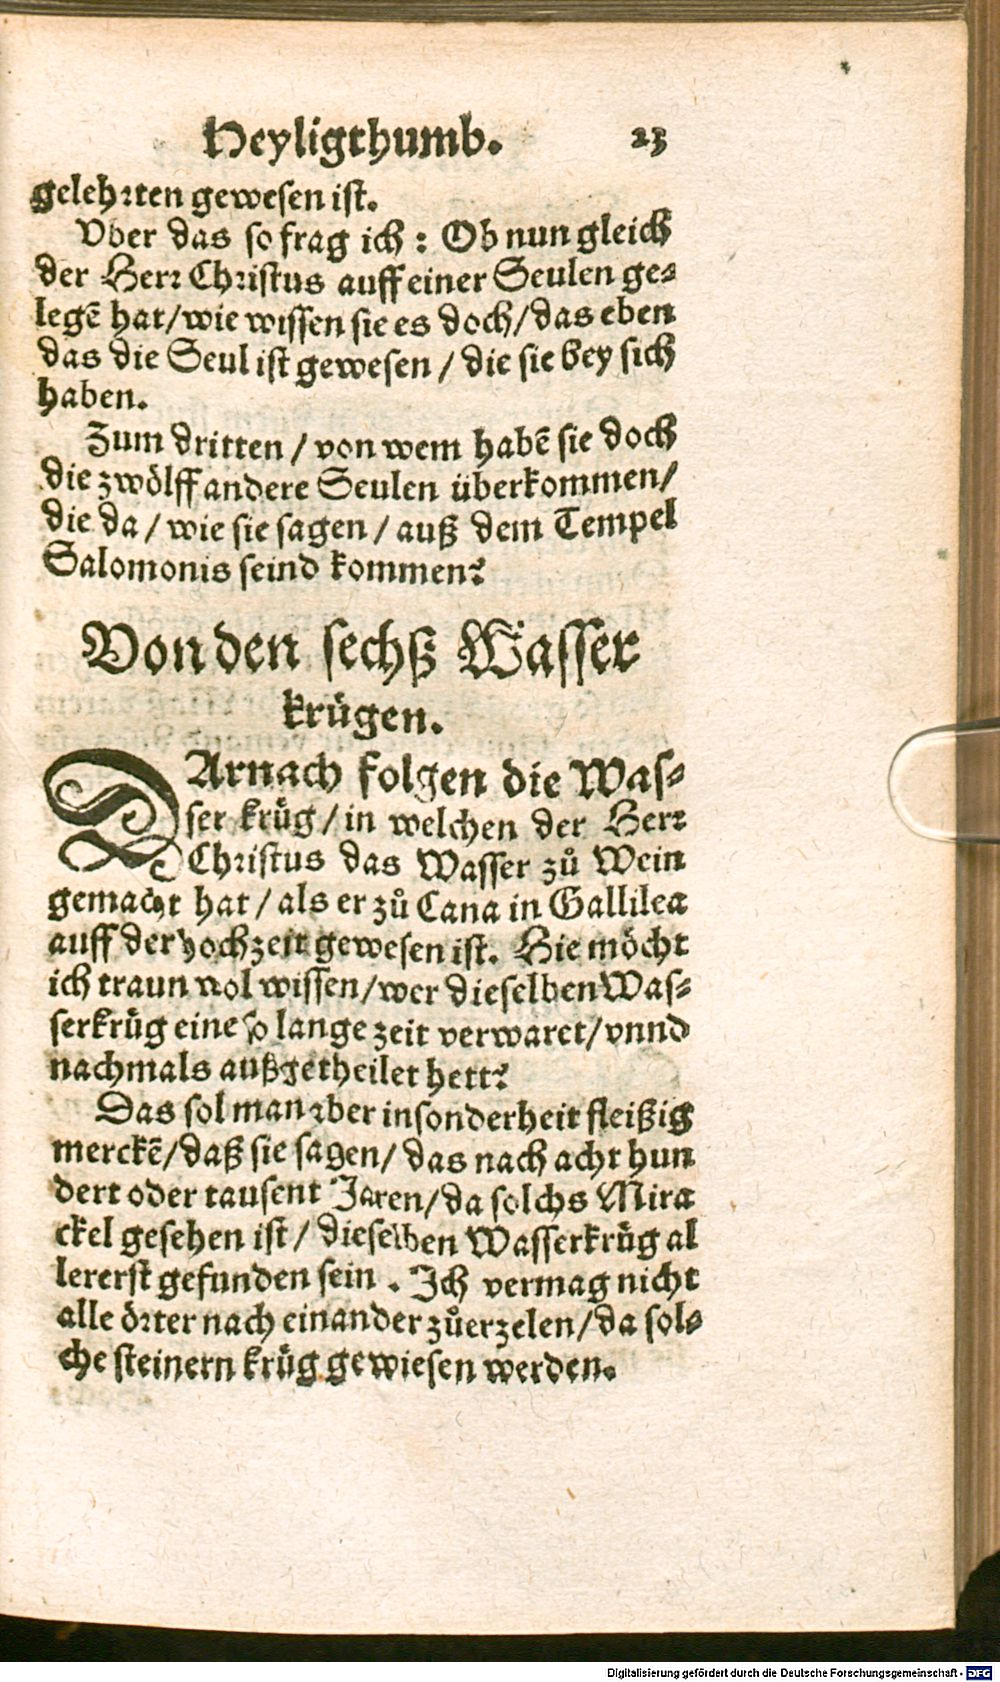 Heyligthumb. 23
gelehrten gewesen ist.
Vber das so frag ich: Ob nun gleich
der Herr Christus auff einer Seulen ge-
legē hat/wie wissen sie es doch/das eben
das die Seul ist gewesen/die sie bey sich
haben.
Zum dritten/von wem habē sie doch
die zwölff andere Seulen überkommen/
die da/wie sie sagen/auß dem Tempel
Salomonis seind kommen?
Von den sechß Wasser
krügen.
DArnach folgen die Was-
ser krüg/in welchen der Herr
Christus das Wasser zů Wein
gemacht hat/als er zů Cana in Gallilea
auff der hochzeit gewesen ist. Hie möcht
ich traun wol wissen/wer dieselben Was-
serkrüg eine so lange zeit verwaret/vnnd
nachmals außgetheilet hett?
Das sol man aber insonderheit fleißig
merckē/daß sie sagen/das nach acht hun
dert oder tausent Jaren/da solchs Mira
ckel gesehen ist/dieselben Wasserkrüg al
lererst gefunden sein. Ich vermag nicht
alle örter nach einander zůerzelen/da sol-
che steinern krüg gewiesen werden.
Digitalisierung gefördert durch die Deutsche Forschungsgemeinschaft - DFG